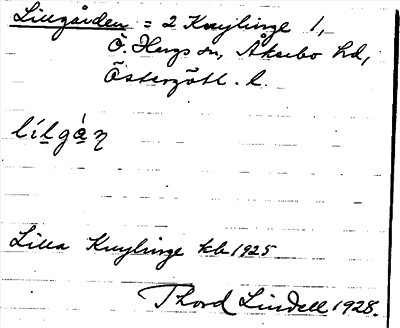 Lillgården = 2 Knylinge 1,
Ö. Hargs sn, Åkerbo hd,
Östergötl. l.
lílgȧ̀ņ
Lilla Knylinge kb 1925
Thord Lindell 1928.